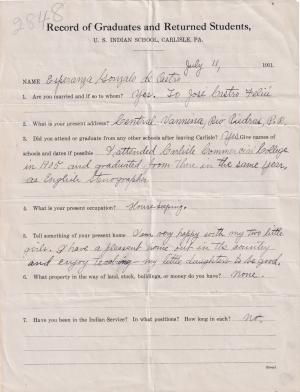 2848
Record of Graduates and Returned Students,
U. S. INDIAN SCHOOL, CARLISLE, PA.
July 11, 1911.
NAME Esperanza Gonzalo de Castro
1. Are you married and if so to whom? Yes. To José Castro Feliú
2. What is your present address? Central Vannina, Rio Piedras, P.R.
3. Did you attend or graduate from any other schools after leaving Carlisle? Yes. Give names of
schools and dates if possible I attended Carlisle Commercial College
in 1905 and graduated from there in the same year,
as English Stenographer
4. What is your present occupation? Housekeeping.
5. Tell something of your present home I am very happy with my two little
girls. I have a pleasant home out in the country
and enjoy teaching my little daughters to be good.
6. What property in the way of land, stock, buildings, or money do you have? None.
7. Have you been in the Indian Service? In what positions? How long in each? No.
(Over)